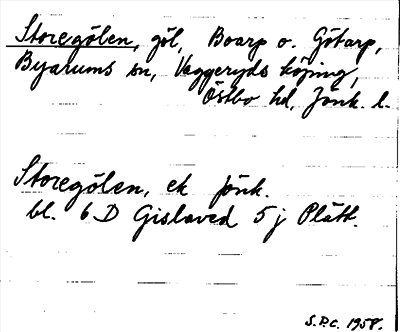 Storegölen, göl, Boarp o. Götarp,
Byarums sn, Vaggeryds köping,
Östbo hd, Jönk. l.
Storegölen, ek jönk.
bl. 6 D Gislaved 5 j Plätt.
S.P.C. 1958.